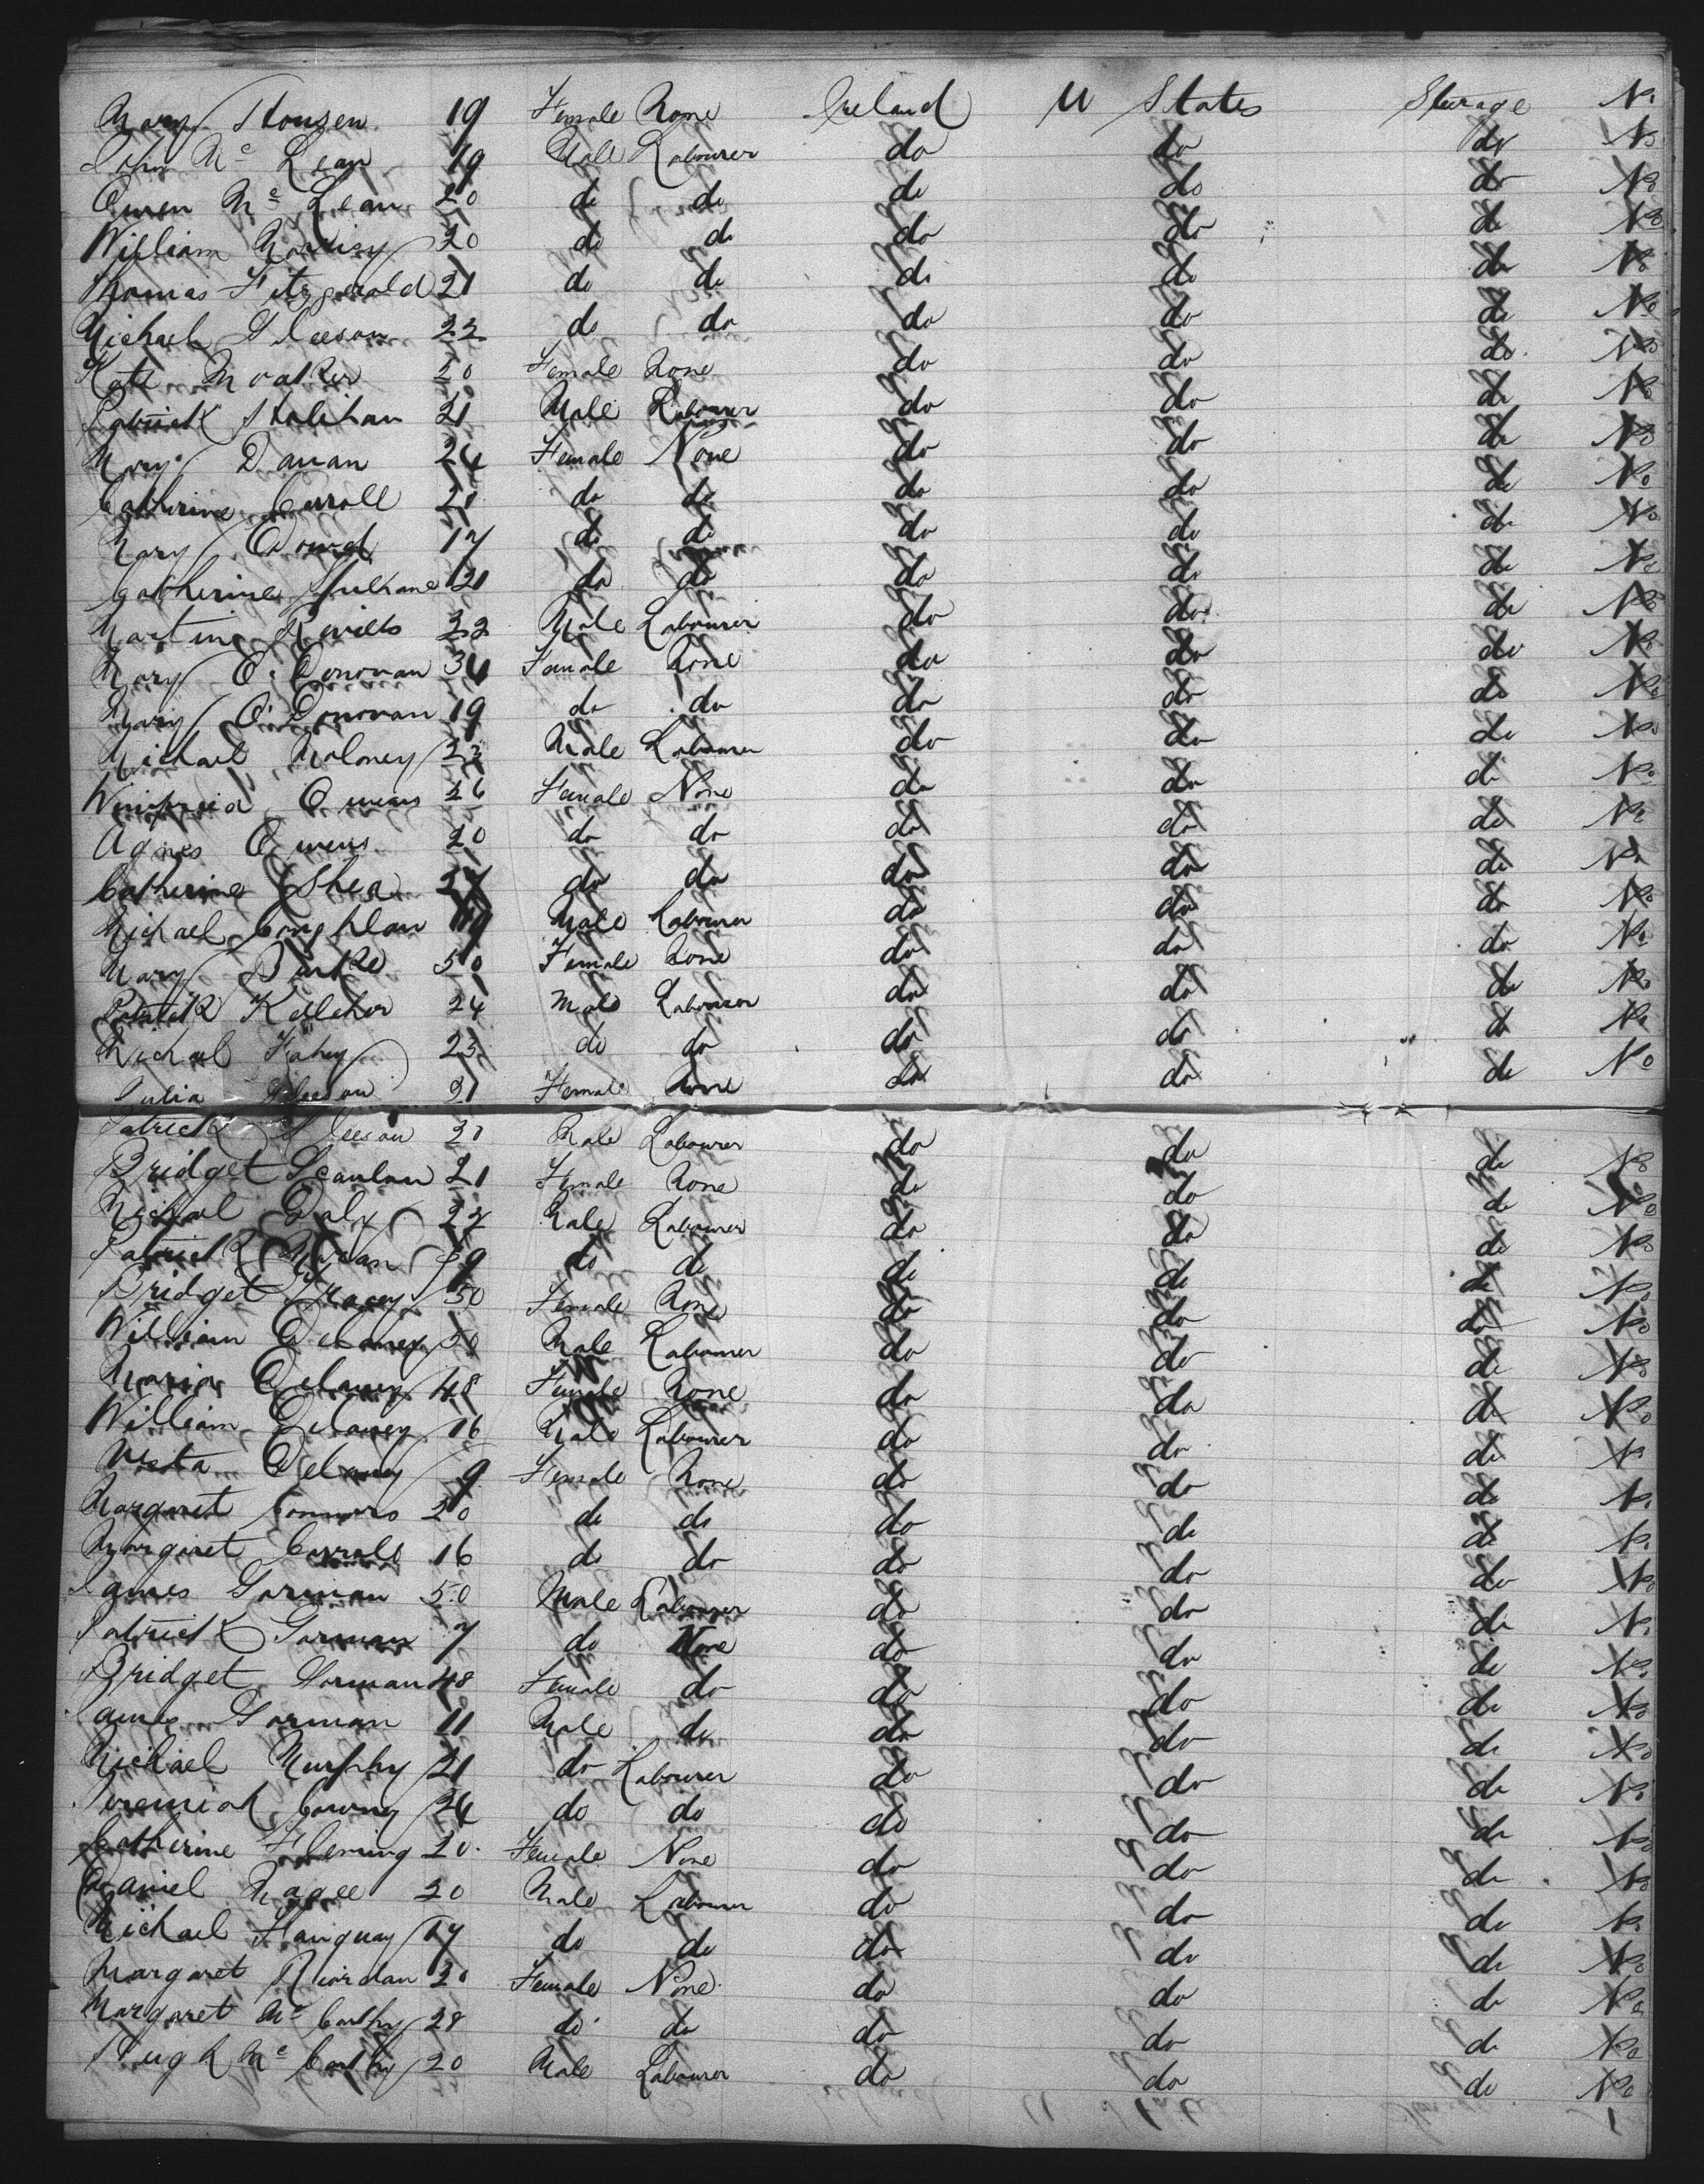 Mary 19 Female None Ireland U States Steerage No
John Mc Lean 19 Male Labourer do do do No
Owen Mc Lean 20 do do do do do No
William 20 do do do do do No
Thomas Fitzgerald 21 do do do do do No
Michael Gleeson 22 do do do do do No
Kate 20 Female None do do do No
Patrick 21 Male Labourer do do do No
Mary 24 Female None do do do No
Catherine Carroll 21 do do do do do No
Mary 17 do do do do do No
Catherine 21 do do do do do No
Martin 22 Male Labourer do do do No
Mary O'Donovan 34 Female None do do do No
Mary O'Donovan 19 do do do do do No
Michael Moloney 23 Male Labourer do do do No
Owens 26 Female None do do do No
Agnes Owens 20 do do do do do No
Catherine Shea do do do do do No
Michael Coughlan 19 Male Labourer do do do No
Mary Burke 50 Female None do do do No
Patrick Kelleher 24 Male Labourer do do do No
Michael Fahey 23 do do do do do No
Julia Gleeson 21 Female None do do do No
Patrick Gleeson 21 Male Labourer do do do No
Bridget Scanlan 21 Female None do do do No
Michael Daly 22 Male Labourer do do do No
Patrick do do do do do No
Bridget 50 Female None do do do No
William Delaney 50 Male Labourer do do do No
Maria Delaney 48 Female None do do do No
William Delaney 16 Male Labourer do do do No
Delaney 9 Female None do do do No
Margaret Connors 20 do do do do do No
Margaret Carroll 16 do do do do do No
James Gorman 50 Male Labourer do do do No
Patrick Gorman 7 do None do do do No
Bridget Gorman 48 Female do do do do No
James Gorman 11 Male do do do do No
Michael Murphy 21 do Labourer do do do No
Jeremiah 24 do do do do do No
Catherine Fleming 20 Female None do do do No
Daniel Magee 20 Male Labourer do do do No
Michael 17 do do do do do No
Margaret Riordan 20 Female None do do do No
Margaret Mc Carthy 28 do do do do do No
Hugh Mc Carthy 20 Male Labourer do do do No